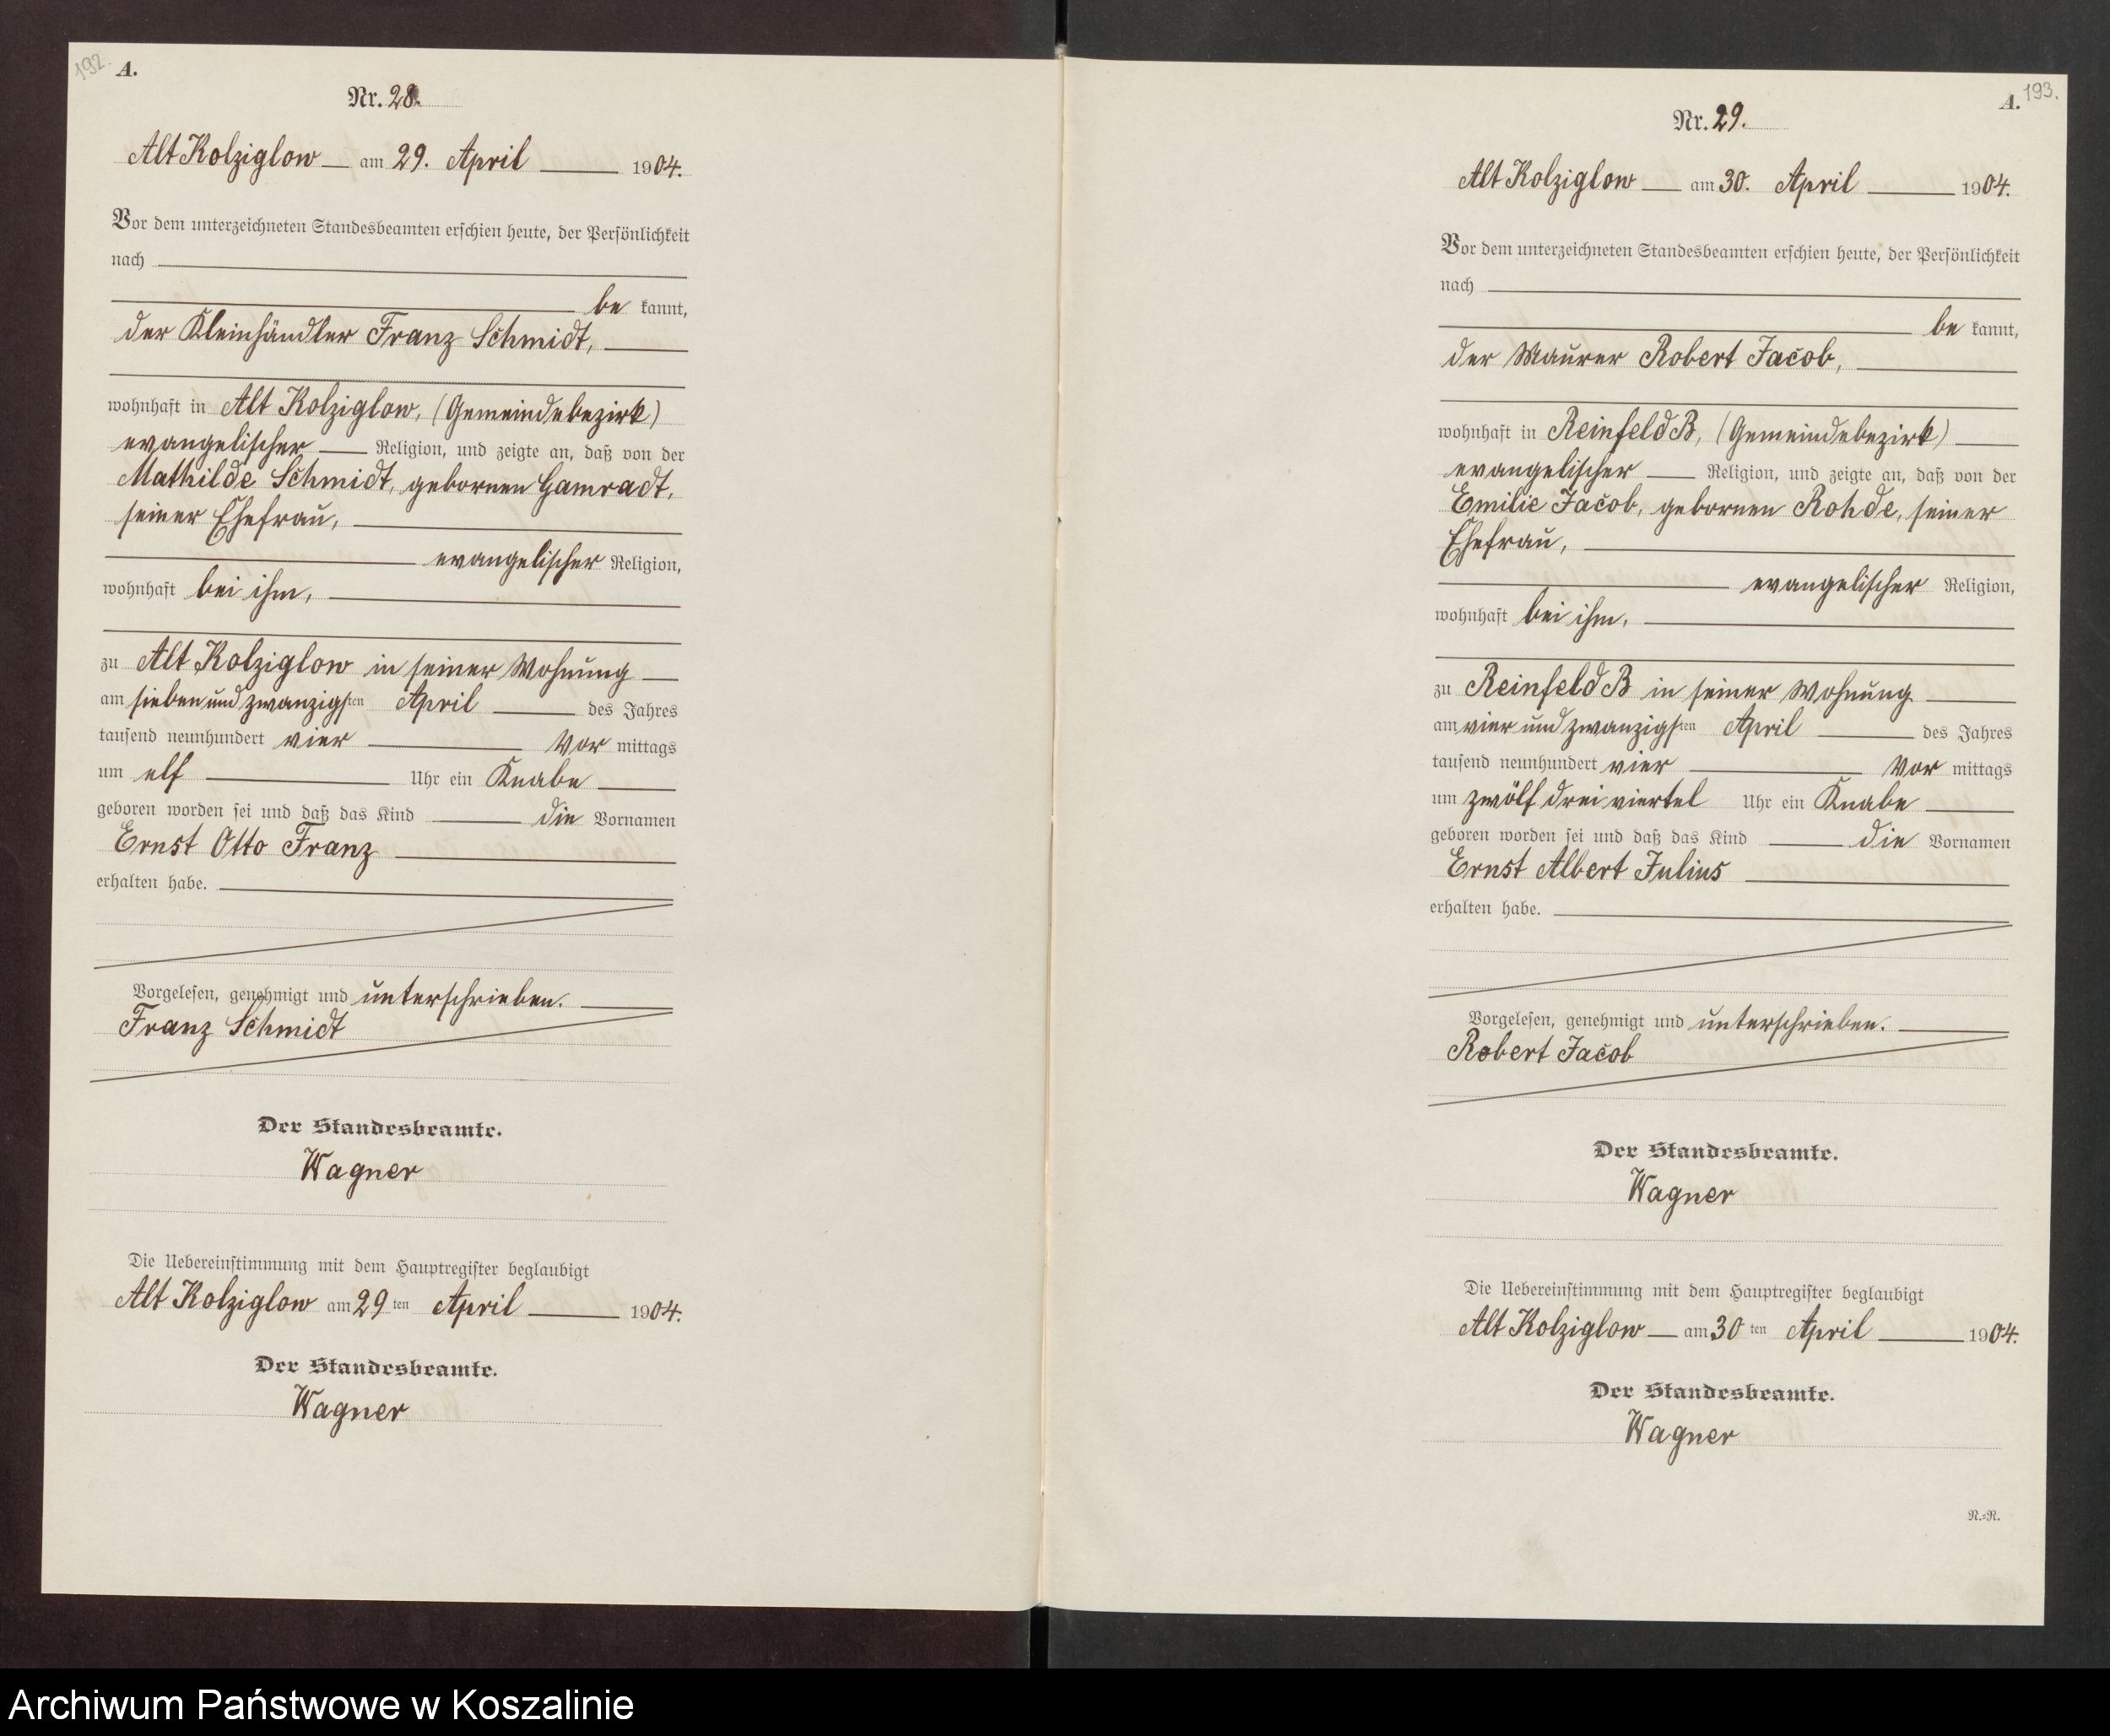 192.
A.
Nr. 28.
Alt Kolziglow am 29. April 1904.
Vor dem unterzeichneten Standesbeamten erschien heute, der Persönlichkeit
nach
be kannt,
der Kleinhändler Franz Schmidt,
wohnhaft in Alt Kolziglow, (Gemeindebezirk)
evangelischer Religion, und zeigte an, daß von der
Mathilde Schmidt, gebornen Gamradt,
seiner Ehefrau,
evangelischer Religion,
wohnhaft bei ihm,
zu Alt Kolziglow in seiner Wohnung
am sieben und zwanzigsten April des Jahres
tausend neunhundert vier Vor mittags
um elf Uhr ein Knabe
geboren worden sei und daß das Kind die Vornamen
Ernst Otto Franz
erhalten habe.
Vorgelesen, genehmigt und unterschrieben.
Franz Schmidt
Der Standesbeamte.
Wagner
Die Uebereinstimmung mit dem Hauptregister beglaubigt
Alt Kolziglow am 29 ten April 1904.
Der Standesbeamte.
Wagner
193.
A.
Nr. 29.
Alt Kolziglow am 30. April 1904.
Vor dem unterzeichneten Standesbeamten erschien heute, der Persönlichkeit
nach
be kannt,
der Maurer Robert Jacob,
wohnhaft in Reinfeld B, (Gemeindebezirk)
evangelischer Religion, und zeigte an, daß von der
Emilie Jacob, gebornen Rohde, seiner
Ehefrau,
evangelischer Religion,
wohnhaft bei ihm,
zu Reinfeld B in seiner Wohnung
am vier und zwanzigsten April des Jahres
tausend neunhundert vier Vor mittags
um zwölf drei viertel Uhr ein Knabe
geboren worden sei und daß das Kind die Vornamen
Ernst Albert Julius
erhalten habe.
Vorgelesen, genehmigt und unterschrieben.
Robert Jacob
Der Standesbeamte.
Wagner
Die Uebereinstimmung mit dem Hauptregister beglaubigt
Alt Kolziglow am 30 ten April 1904.
Der Standesbeamte.
Wagner
N.=R.
Archiwum Państwowe w Koszalinie